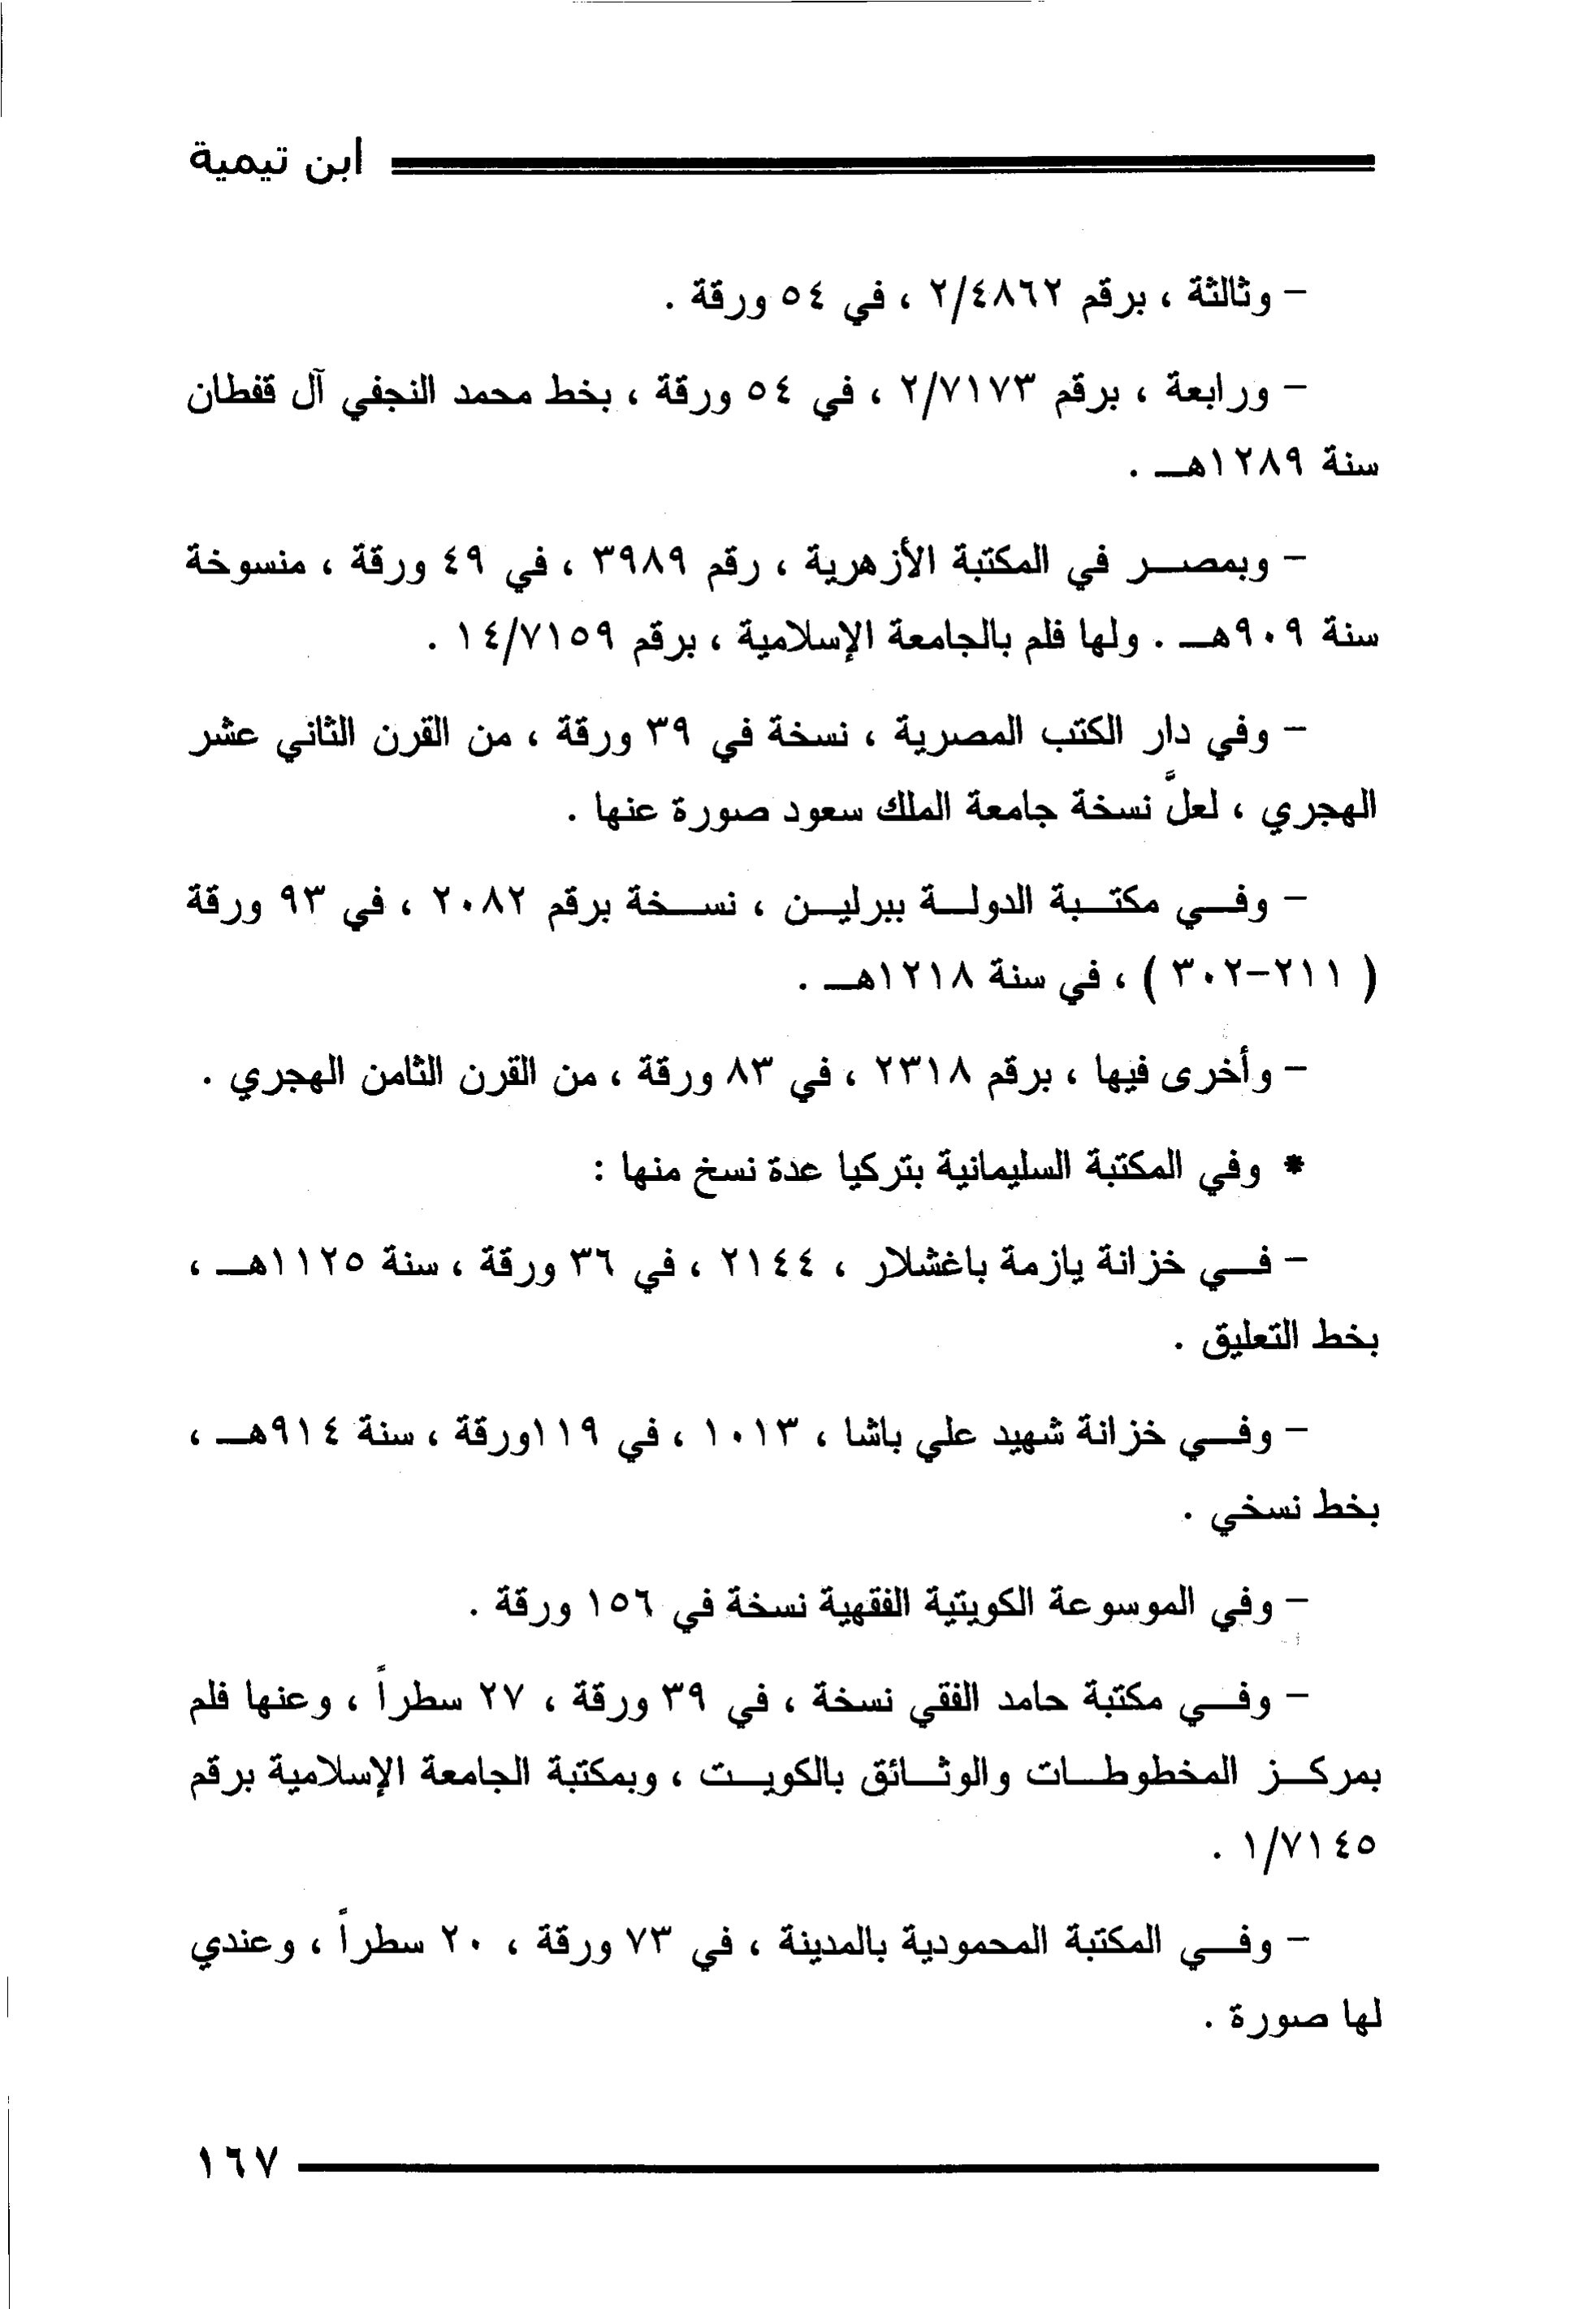 ابن تيمية
- وثالثة ، برقم ٢/٤٨٦٢ ، في ٥٤ ورقة .
- ورابعة ، برقم ٢/٧١٧٣ ، في ٥٤ ورقة ، بخط محمد النجفي آل قفطان
سنة ١٢٨٩هـ .
- وبمصر في المكتبة الأزهرية ، رقم ٣٩٨٩ ، في ٤٩ ورقة ، منسوخة
سنة ٩٠٩هـ . ولها فلم بالجامعة الإسلامية ، برقم ١٤/٧١٥٩ .
- وفي دار الكتب المصرية ، نسخة في ٣٩ ورقة ، من القرن الثاني عشر
الهجري ، لعلَّ نسخة جامعة الملك سعود صورة عنها .
- وفي مكتبة الدولة ببرلين ، نسخة برقم ٢٠٨٢ ، في ٩٣ ورقة
( ٢١١-٣٠٢ ) ، في سنة ١٢١٨هـ .
- وأخرى فيها ، برقم ٢٣١٨ ، في ٨٣ ورقة ، من القرن الثامن الهجري .
* وفي المكتبة السليمانية بتركيا عدة نسخ منها :
- في خزانة يازمة باغشلار ، ٢١٤٤ ، في ٣٦ ورقة ، سنة ١١٢٥هـ ،
بخط التعليق .
- وفي خزانة شهيد علي باشا ، ١٠١٣ ، في ١١٩ورقة ، سنة ٩١٤هـ ،
بخط نسخي .
- وفي الموسوعة الكويتية الفقهية نسخة في ١٥٦ ورقة .
- وفي مكتبة حامد الفقي نسخة ، في ٣٩ ورقة ، ٢٧ سطراً ، وعنها فلم
بمركز المخطوطات والوثائق بالكويت ، وبمكتبة الجامعة الإسلامية برقم
١/٧١٤٥ .
- وفي المكتبة المحمودية بالمدينة ، في ٧٣ ورقة ، ٢٠ سطراً ، وعندي
لها صورة .
١٦٧